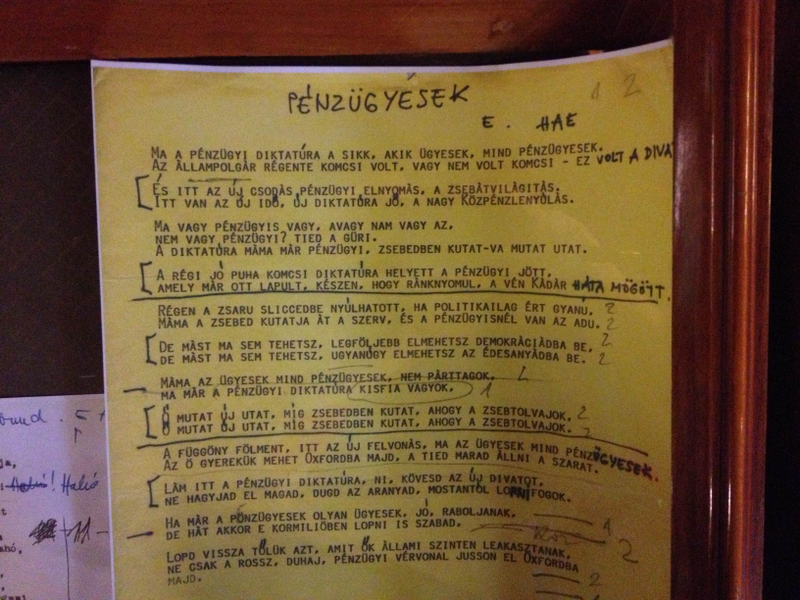 PÉNZÜGYÉSEK
1 2
E. HAE
MA A PÉNZÜGYI DIKTATÚRA A SIKK, AKIK ÜGYESEK, MIND PÉNZÜGYESEK.
AZ ÁLLAMPOLGÁR RÉGENTE KOMCSI VOLT, VAGY NEM VOLT KOMCSI - EZ VOLT A DIVA
ÉS ITT AZ ÚJ CSODÁS PÉNZÜGYI ELNYOMÁS, A ZSEBÁTVILÁGITÁS.
ITT VAN AZ ÚJ IDŐ, ÚJ DIKTATÚRA JŐ, A NAGY KÖZPÉNZLENYÚLÁS.
MA VAGY PÉNZÜGYIS VAGY, AVAGY NAM VAGY AZ,
NEM VAGY PÉNZÜGYI? TIED A GÜRI.
A DIKTATÚRA MÁMA MÁR PÉNZÜGYI, ZSEBEDBEN KUTAT-VA MUTAT UTAT.
A RÉGI JÓ PUHA KOMCSI DIKTATÚRA HELYETT A PÉNZÜGYI JÖTT,
AMELY MÁR OTT LAPULT, KÉSZEN, HOGY RÁNKNYOMUL, A VÉN KÁDÁR HÁTA MÖGÖTT.
RÉGEN A ZSARU SLICCEDBE NYÚLHATOTT, HA POLITIKAILAG ÉRT GYANÚ. 2
MÁMA A ZSEBED KUTATJA ÁT A SZERV, ÉS A PÉNZÜGYISNÉL VAN AZ ADU. 2
DE MÁST MA SEM TEHETSZ, LEGFÖLJEBB ELMEHETSZ DEMOKRÁCIÁDBA BE, 2
DE MÁST MA SEM TEHETSZ, UGYANÚGY ELMEHETSZ AZ ÉDESANYÁDBA BE. 2
MÁMA AZ ÜGYESEK MIND PÉNZÜGYESEK, NEM PÁRTTAGOK,
MA MÁR A PÉNZÜGYI DIKTATÚRA KISFIA VAGYOK, 1
Ő MUTAT ÚJ UTAT, MIG ZSEBEDBEN KUTAT, AHOGY A ZSEBTOLVAJOK, 2
Ő MUTAT ÚJ UTAT, MIG ZSEBEDBEN KUTAT, AHOGY A ZSEBTOLVAJOK. 2
A FÜGGÖNY FÖLMENT, ITT AZ ÚJ FELVONÁS, MA AZ ÜGYESEK MIND PÉNZÜGYESEK.
AZ Ő GYEREKÜK MEHET OXFORDBA MAJD, A TIED MARAD ÁLLNI A SZARÁT.
LÁM ITT A PÉNZÜGYI DIKTATÚRA, NI, KÖVESD AZ ÚJ DIVATOT,
NE HAGYJAD EL MAGAD, DUGD AZ ARANYAD, MOSTANTÓL LOPNI FOGOK.
HA MÁR A PÉNZÜGYESEK OLYAN ÜGYESEK, JÓ, RABOLJANAK,
DE HÁT AKKOR E KORMILIŐBEN LOPNI IS SZABAD.
1
2
LOPD VISSZA TŐLÜK AZT, AMIT ŐK ÁLLAMI SZINTEN LEAKASZTANAK,
NE CSAK A ROSSZ, DUHAJ, PÉNZÜGYI VÉRVONAL JUSSON EL OXFORDBA
MAJD.
2
Halió